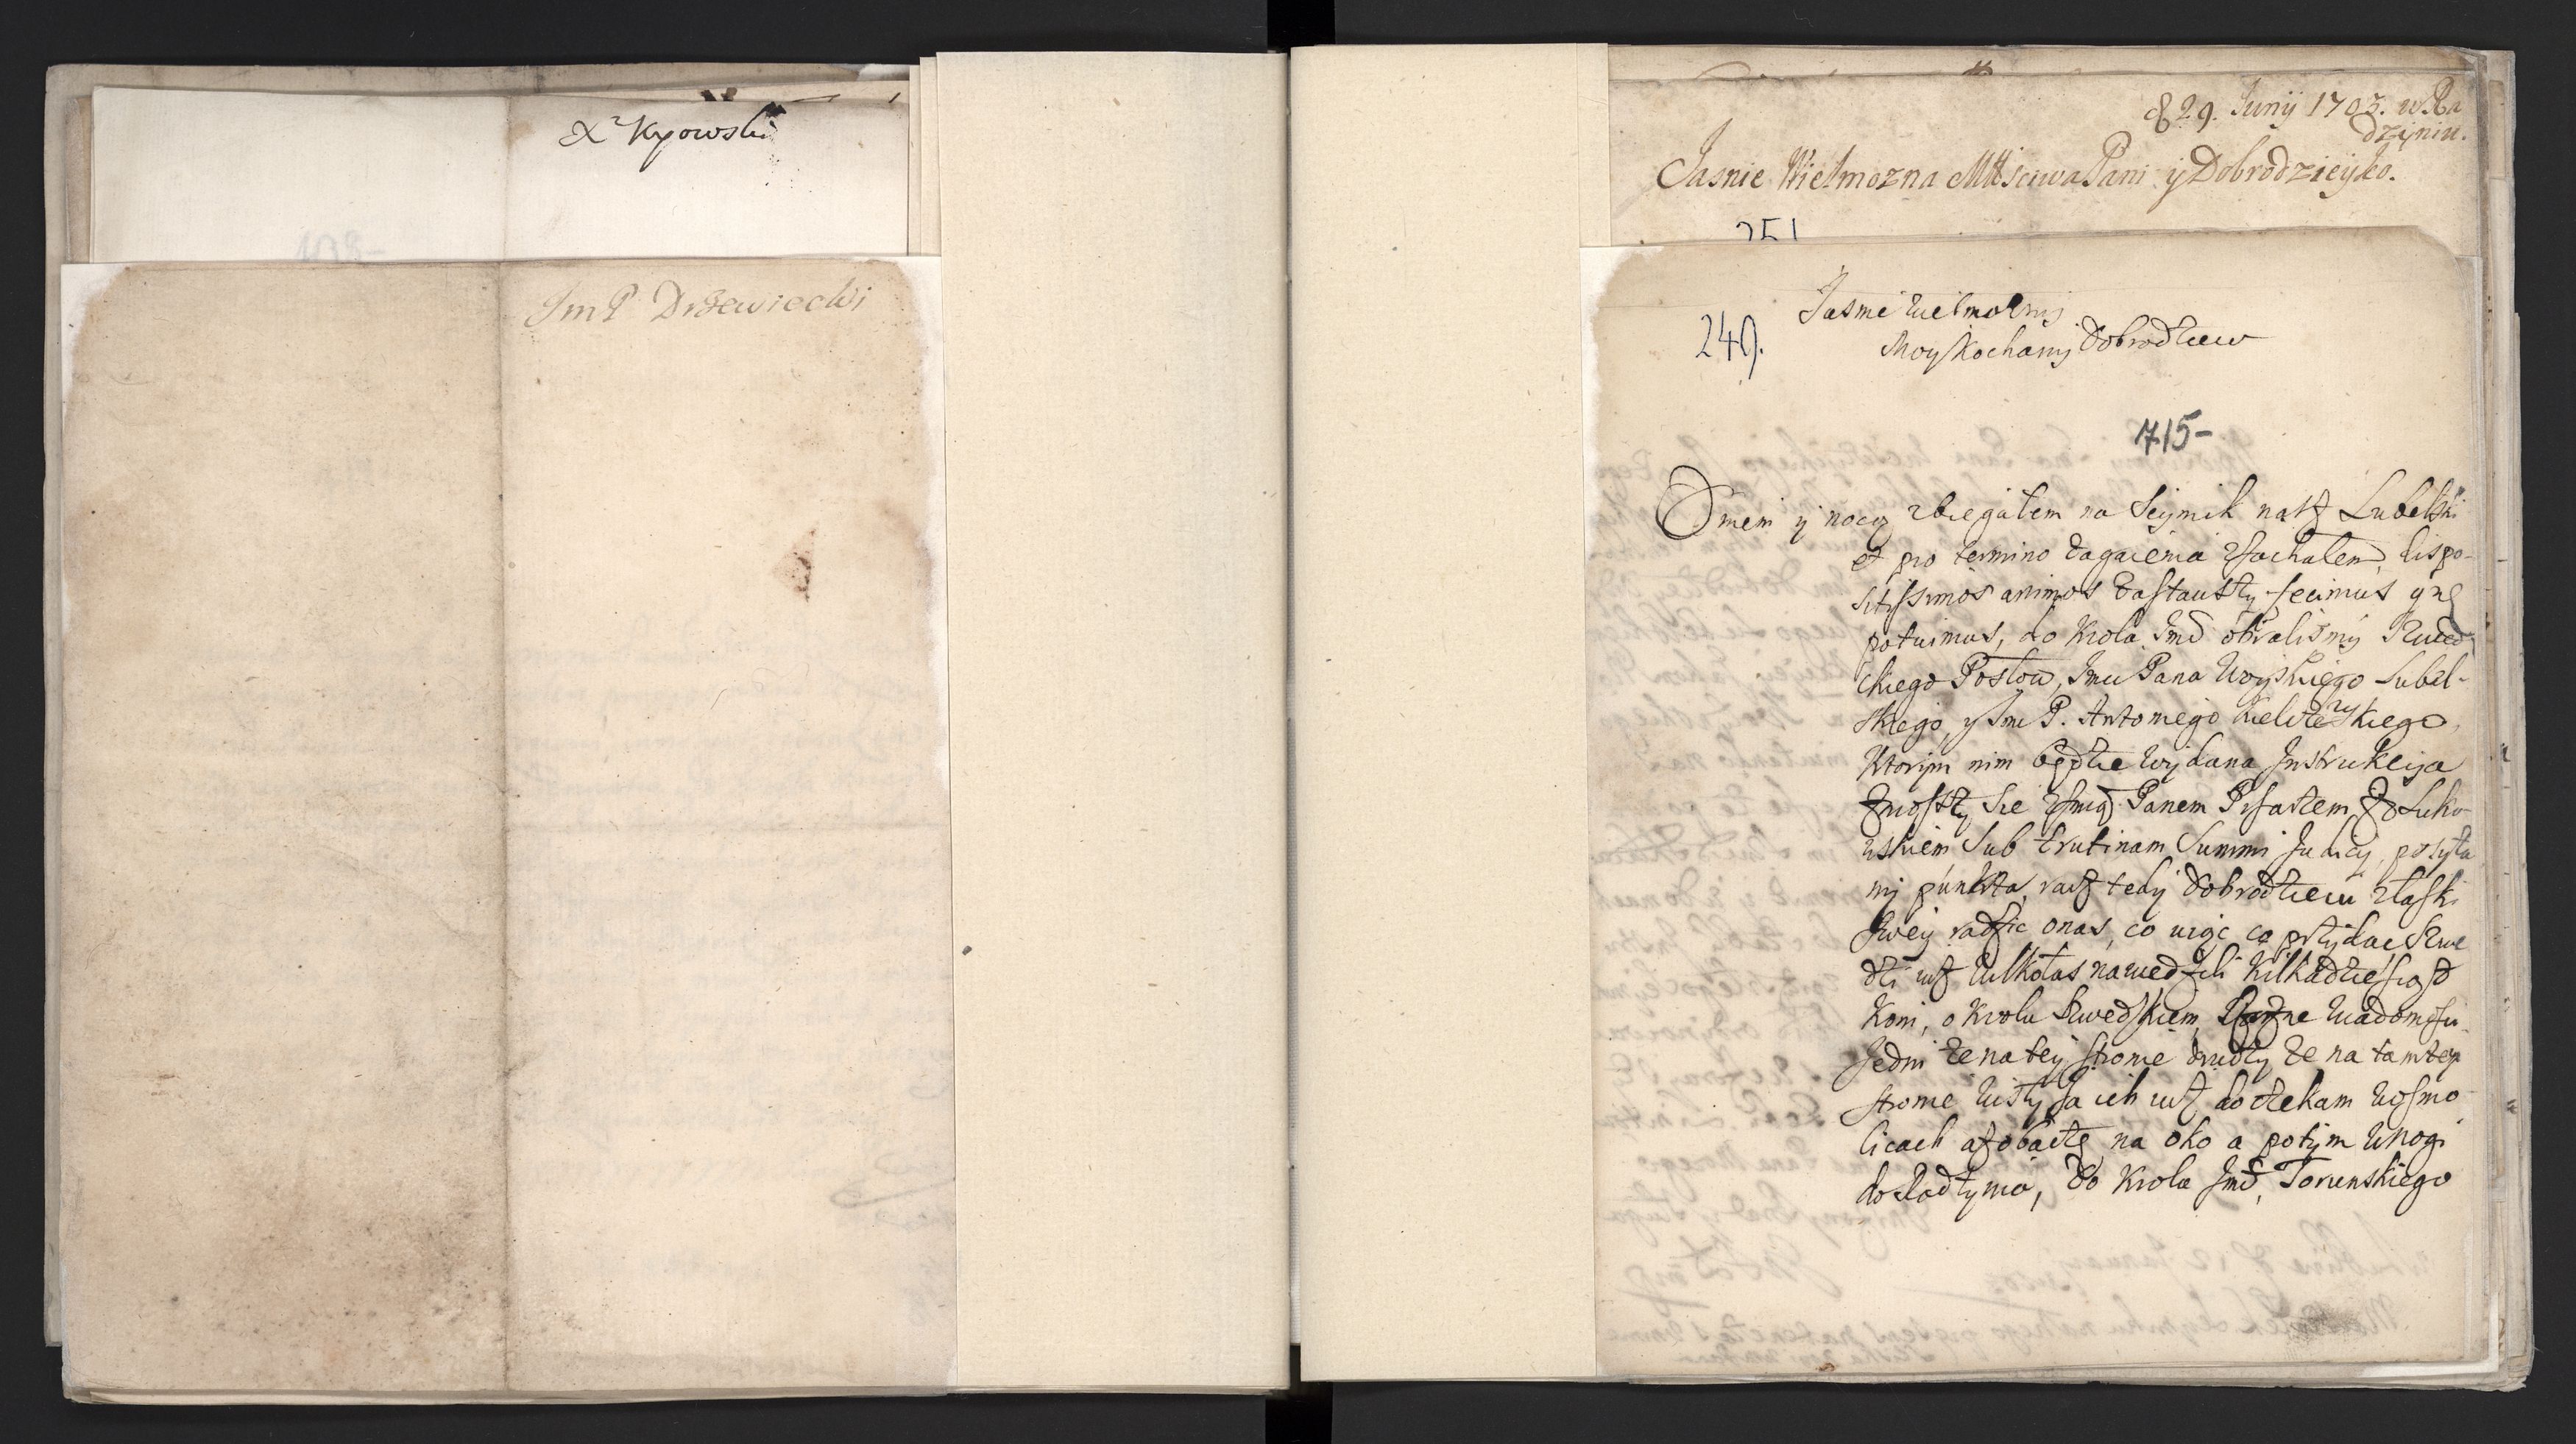 X Kijowski
Jm P Drzewiecki
d 29. Junij 1703. w Ra
dzyniu.
Jasnie Wielmozna Mttsciwa Pani y Dobrodzieyko.
251
249.
Jasnie Wielmozny
Moy Kochany Dobrodzieiu
715-
Dniem y nocą zbiegałem na Seymik nasz Lubelski
et pro termino zagaienia ziachałem, dispo-
sitissimos animos zastawszy fecimus q
potuimus, do Krola Jmci obralismy Szwed
ckiego Posłow, Jmci Pana Woyskiego Lubel-
skiego, y Jmci P. Antoniego
Ktorym nim będzie wydana Instrukcija
zniosszy sie z Jmcią Panem Pisarzem Łuko-
wskiem Sub trutinam Summi Judicij, posyła
my punkta, racz tedy Dobrodzieiu z łaski
swey radzic o nas, co więc co przydac Szwe
dzi iusz nawedzili kilkadziesiąt
koni, o Krolu Szwedskiem wiadomosci
Jedni ze na tey stronie drudzy ze na tamtey
stronie Wisły Ja ich iusz doczekam w Osmo
licach asz obaczę na oko a potym w nogi
do Radzynia, do Krola Jmci, Torunskiego